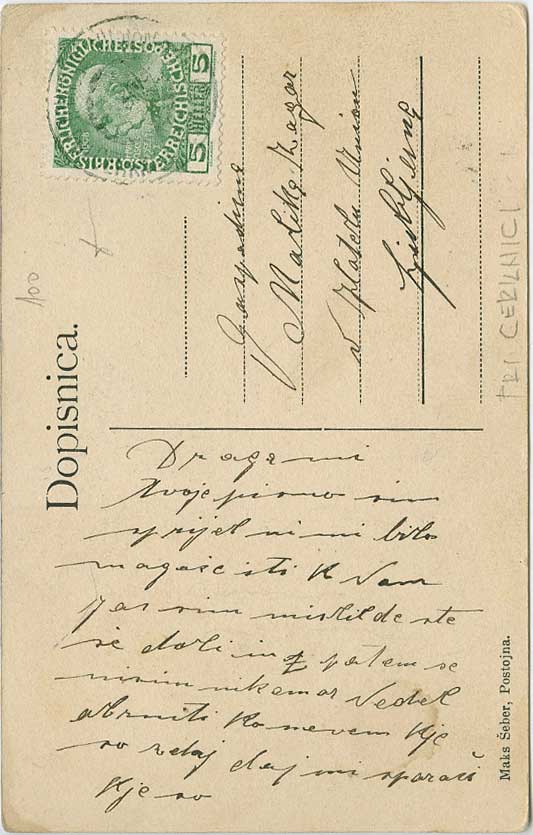 Dopisnica.
KAISERLICHE KÖNIGLICHE ÖSTERREICHISCHE POST
5 HELLER 5
100
Gospodična
Malika Žagar
v Hotelu Union
Ljubljana
TRI
Draga mi
Tvoje pismo sim
sprijel ni mi bilo
magoče iti k Vam
Jas sim mislil de ste
še doli in potem se
nisim nikamor vedel
obrniti ko nevem kje
so zdaj daj mi sporači
kje so
Maks Šeber, Postojna.